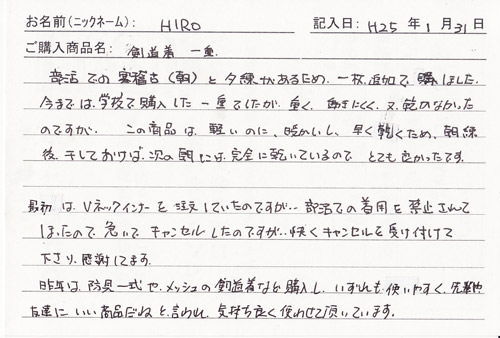 お名前(ニックネーム): HIRO 記入日: H25 年 1 月 31 日
ご購入商品名: 剣道着 一重
部活での寒稽古(朝)と夕練があるため、一枚追加で購入しました。
今までは、学校で購入した一重でしたが、重く、動きにくく、又、乾かなかった
のですが、この商品は、軽いのに、暖かいし、早く乾くため、朝練
後、干しておけば、次の朝には完全に乾いているので とても良かったです。
最初は、Vネックインナーを注文していたのですが… 部活での着用を禁止されて
しまったので、急いでキャンセルしたのですが…快くキャンセルを受け付けて
下さり、感謝してます。
昨年は、防具一式や、メッシュの剣道着などを購入し、いずれも使いやすく、先輩や
友達に いい商品だねと言われ、気持ち良く使わせて頂いています。